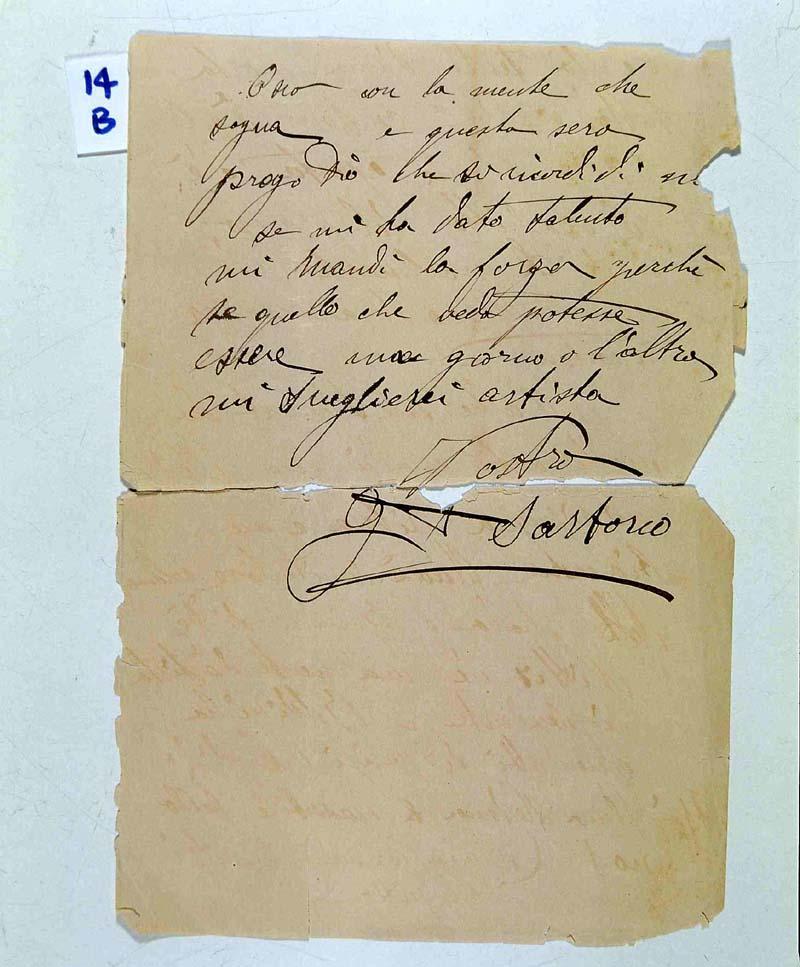 14
B
Oro con la mente che
sogna e questa sera
prego Dio che si ricordi di me
se mi ha dato talento
mi mandi la forza perchè
se quello che vedo potesse
essere un giorno o l'altro
mi sveglierei artista
Vostro
G A Sartorio